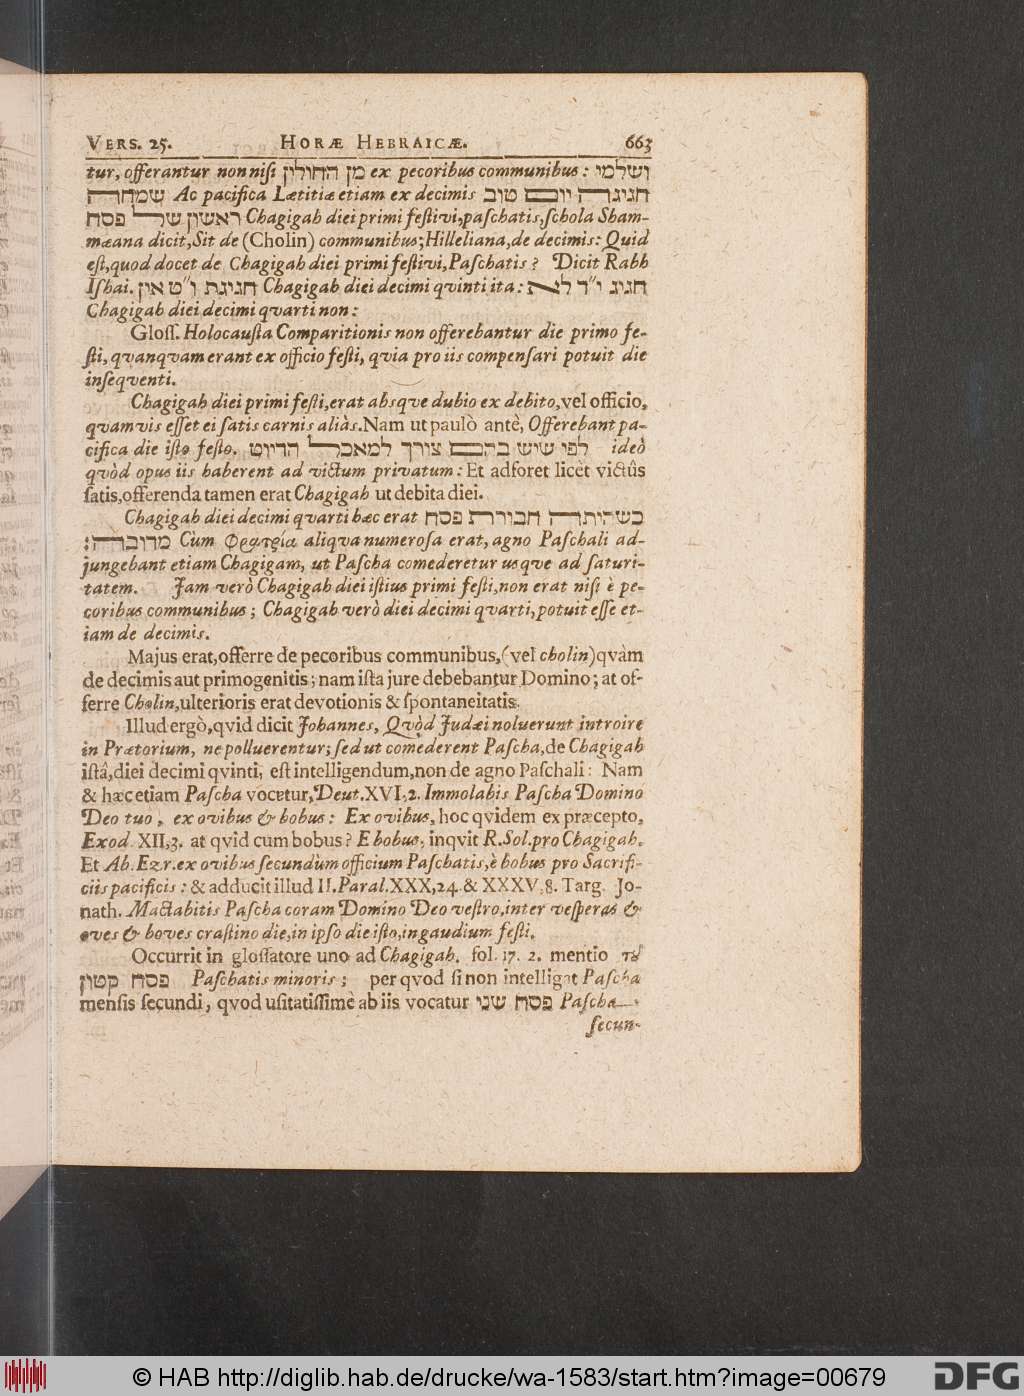 VERS. 25. HORÆ HEBRAICÆ. 663
tur, offerantur non nisi מן החולין ex pecoribus communibus: ושלמי
שמחה Ac pacifica Lætitiæ etiam ex decimis חגיגה יום טוב
ראשון של פסח Chagigah diei primi festivi, paschatis, schola Sham-
mæana dicit, Sit de (Cholin) communibus; Hilleliana, de decimis: Quid
est, quod docet de Chagigah diei primi festivi, Paschatis? Dicit Rabh
Ishai. חגיגת ו"ט אין Chagigah diei decimi qvinti ita: חגיג י"ד לא
Chagigah diei decimi qvarti non:
Gloss. Holocausta Comparitionis non offerebantur die primo fe-
sti, qvanqvam erant ex officio festi, qvia pro iis compensari potuit die
inseqventi.
Chagigah diei primi festi, erat absqve dubio ex debito, vel officio,
qvamvis esset ei satis carnis aliàs. Nam ut paulò antè, Offerebant pa-
cifica die isto festo. לפי שיש בהם צורך למאכל הדיוט ideò
qvòd opus iis haberent ad victum privatum: Et adforet licèt victûs
satis, offerenda tamen erat Chagigah ut debita diei.
Chagigah diei decimi qvarti hæc erat כשהיתה חבורת פסח
מרובה: Cùm Φρατρία aliqva numerosa erat, agno Paschali ad-
jungebant etiam Chagigam, ut Pascha comederetur usqve ad saturi-
tatem. Jam verò Chagigah diei istius primi festi, non erat nisi è pe-
coribus communibus; Chagigah verò diei decimi qvarti, potuit esse et-
iam de decimis.
Majus erat, offerre de pecoribus communibus, (vel cholin) qvàm
de decimis aut primogenitis; nam ista jure debebantur Domino; at of-
ferre Cholin, ulterioris erat devotionis & spontaneitatis.
Illud ergò, qvid dicit Johannes, Qvòd Judæi noluerunt introire
in Prætorium, ne polluerentur; sed ut comederent Pascha, de Chagigah
istâ, diei decimi qvinti, est intelligendum, non de agno Paschali: Nam
& hæc etiam Pascha vocetur, Deut. XVI, 2. Immolabis Pascha Domino
Deo tuo, ex ovibus & bobus: Ex ovibus, hoc qvidem ex præcepto,
Exod. XII, 3. at qvid cum bobus? E bobus, inqvit R. Sol. pro Chagigah.
Et Ab. Ezr. ex ovibus secundùm officium Paschatis, è bobus pro Sacrifi-
ciis pacificis: & adducit illud II. Paral. XXX, 24. & XXXV, 8. Targ. Jo-
nath. Mactabitis Pascha coram Domino Deo vestro, inter vesperas &
oves & boves crastino die, in ipso die isto, in gaudium festi.
Occurrit in glossatore uno ad Chagigah. fol. 17. 2. mentio τȣ͂
פסח קטון Paschatis minoris; per qvod si non intelligat Pascha
mensis secundi, qvod usitatissimè ab iis vocatur פסח שני Pascha
secun-
© HAB http://diglib.hab.de/drucke/wa-1583/start.htm?image=00679
DFG